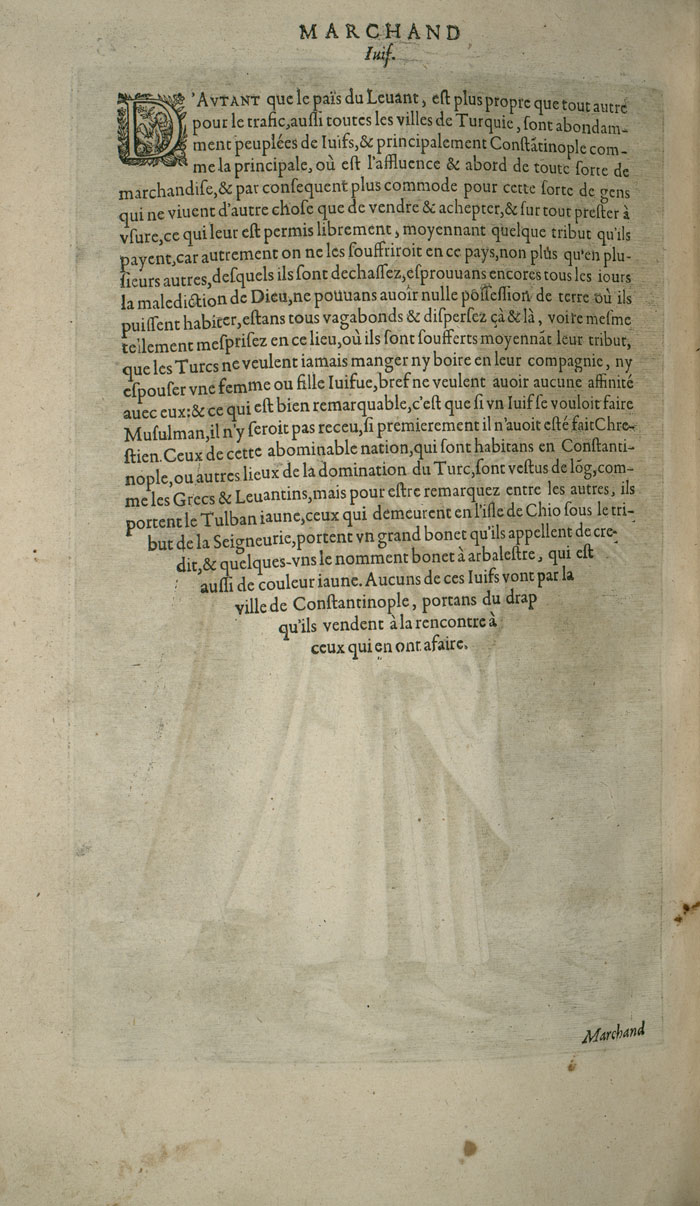 MARCHAND
Iuif.
D'AVTANT que le païs du Leuant, est plus propre que tout autre
pour le trafic,aussi toutes les villes de Turquie, sont abondam-
ment peuplées de Iuifs,& principalement Constãtinople com-
me la principale, où est l'affluence & abord de toute sorte de
marchandise,& par consequent plus commode pour cette sorte de gens
qui ne viuent d'autre chose que de vendre & achepter,& sur tout prester à
vsure,ce qui leur est permis librement, moyennant quelque tribut qu'ils
payent,car autrement on ne les souffriroit en ce pays,non plus qu'en plu-
sieurs autres,desquels ils sont dechassez,esprouuans encores tous les iours
la malediction de Dieu,ne pouuans auoir nulle possession de terre où ils
puissent habiter,estans tous vagabonds & dispersez çà & là, voire mesme
tellement mesprisez en ce lieu,où ils sont soufferts moyennãt leur tribut,
que les Turcs ne veulent iamais manger ny boire en leur compagnie, ny
espouser vne femme ou fille Iuifue,bref ne veulent auoir aucune affinité
auec eux:& ce qui est bien remarquable,c'est que si vn Iuif se vouloit faire
Musulman,il n'y seroit pas receu,si premierement il n'auoit esté fait Chre-
stien. Ceux de cette abominable nation,qui sont habitans en Constanti-
nople,ou autres lieux de la domination du Turc,sont vestus de lõg,com-
me les Grecs & Leuantins,mais pour estre remarquez entre les autres, ils
portent le Tulban iaune,ceux qui demeurent en l'isle de Chio sous le tri-
but de la Seigneurie,portent vn grand bonet qu'ils appellent de cre-
dit,& quelques-vns le nomment bonet à arbalestre, qui est
aussi de couleur iaune. Aucuns de ces Iuifs vont par la
ville de Constantinople, portans du drap
qu'ils vendent à la rencontre à
ceux qui en ont afaire.
Marchand